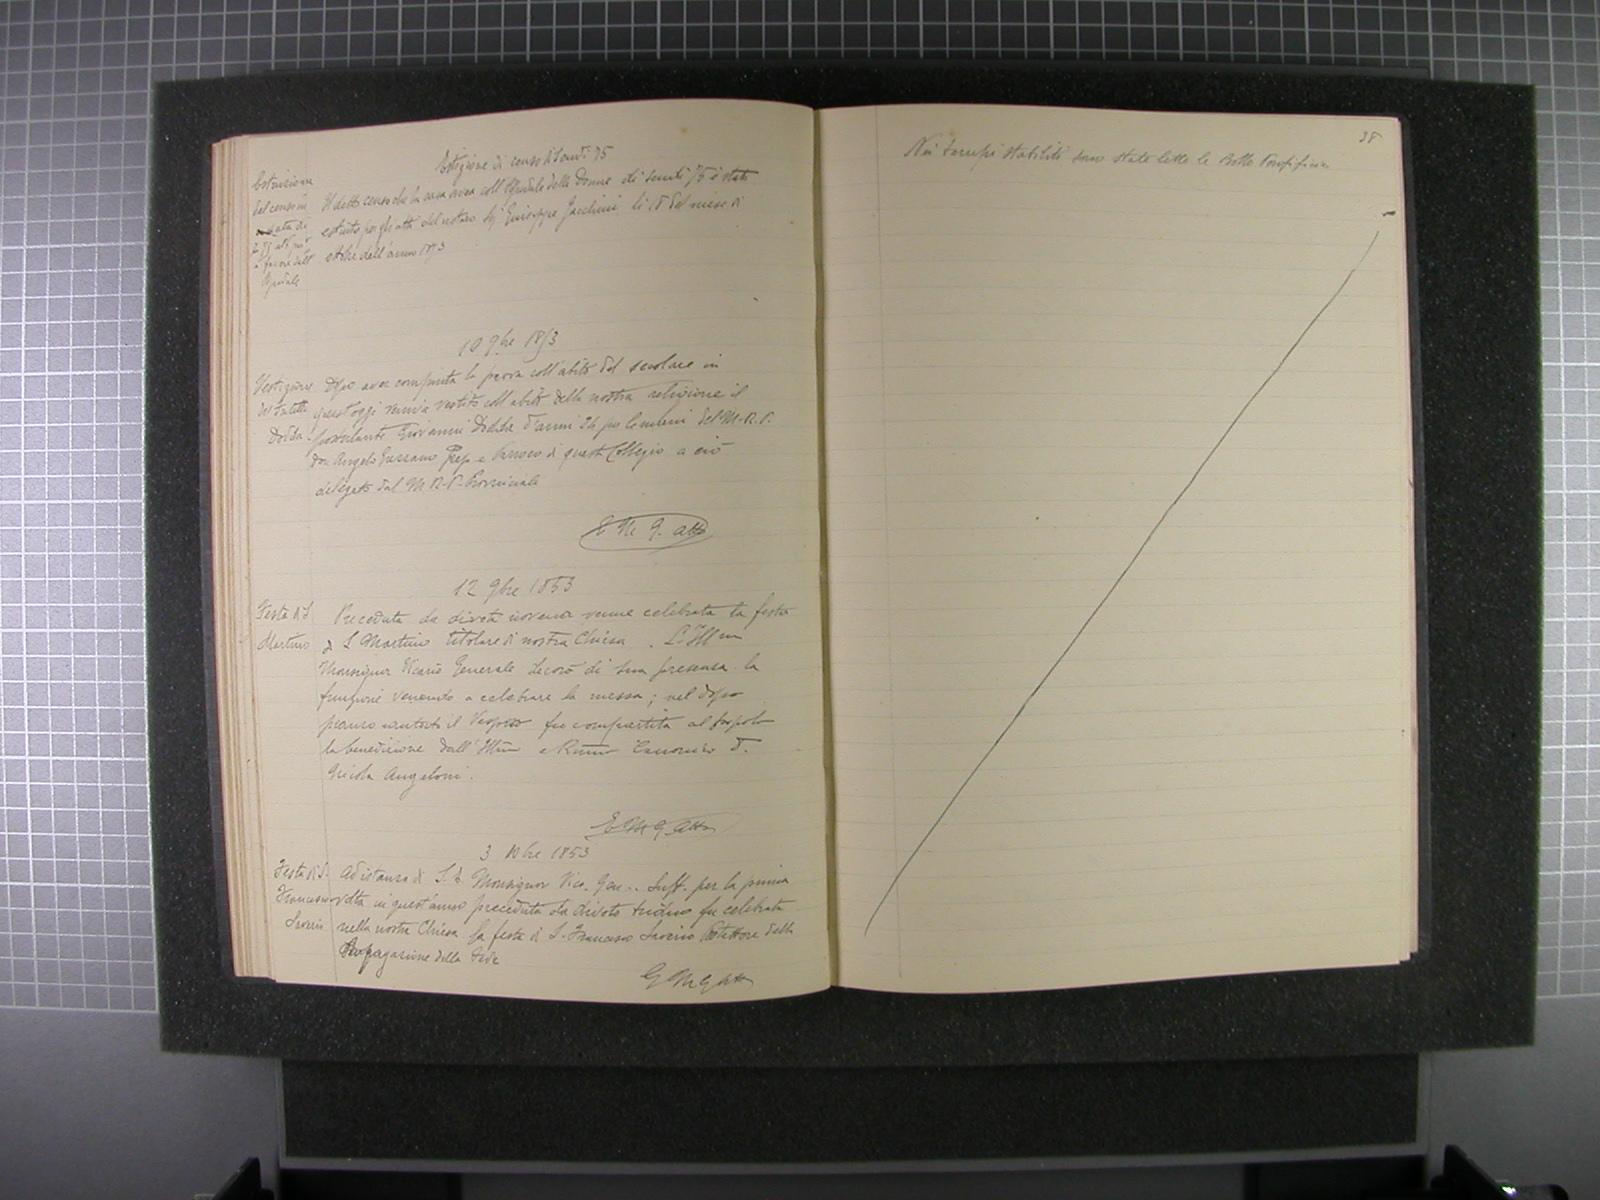 38
Estinzione di censo di scudi 75
Estinzione
del censo in
data di
a favore dell'
Spedale
Il detto censo che la casa avea coll'Ospedale delle Donne di scudi 75 è stato
estinto per gli atti del notaro Sig. Giuseppe Jacchini li 18 del mese di
ottobre dell'anno 1853
10 9bre 1853
Vestizione
del fratello
Dodda
Dopo aver compiuta la prova coll'abito del secolare in
quest'oggi veniva vestito coll'abito della nostra religione il
postulante Giovanni d'anni 24 per le mani del M. R. P.
Don Angelo Prep. e Parroco di questo Collegio a ciò
delegato dal M. R. P. Provinciale
12 9bre 1853
Festa di S
Martino
Preceduta da divota novena venne celebrata la festa
di S Martino titolare di nostra Chiesa. L'Ill mo
Monsignor Vicario Generale decorò di sua presenza la
funzione venendo a celebrare la messa; nel dopo
pranzo cantato il Vespro fu compartita al popolo
la benedizione dall'Illmo e Rmo Canonico D.
Nicola Angeloni.
3 10bre 1853
Festa di S.
Francesco
Saverio
Ad istanza di S. E. Monsignor Vica. Gen. Suff. per la prima
volta in quest'anno preceduta da divoto triduo fu celebrata
nella nostra Chiesa la festa di S. Francesco Saverio Protettore della
Propagazione della Fede
Nei tempi stabiliti sono state lette le Bolle Pontificie